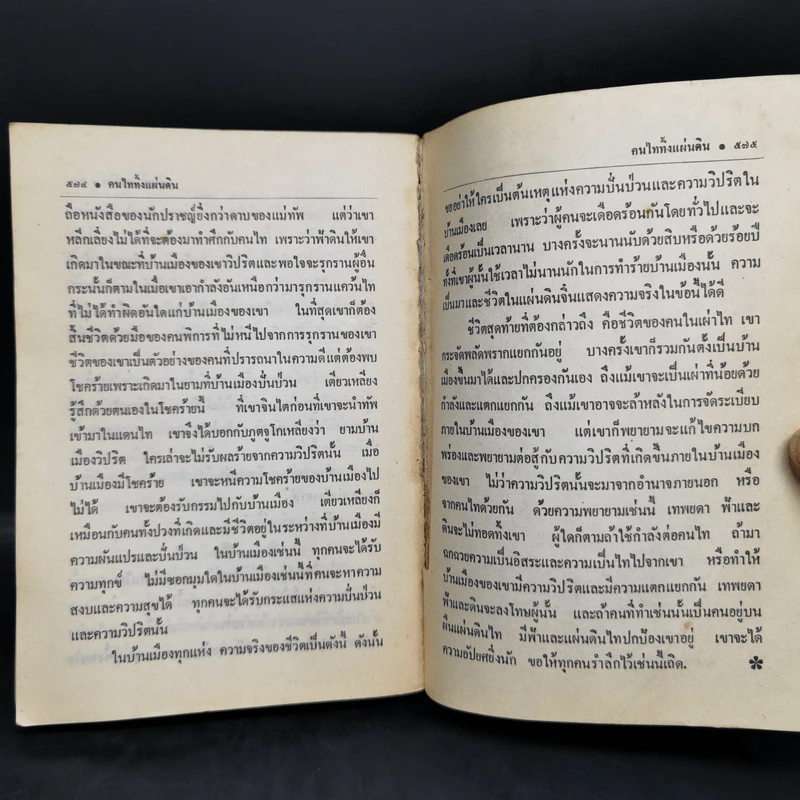 ๕๗๔ • คนไททิ้งแผ่นดิน
ถือหนังสือของนักปราชญ์ยิ่งกว่าดาบของแม่ทัพ แต่ว่าเขา
หลีกเลี่ยงไม่ได้ที่จะต้องมาทำศึกกับคนไท เพราะว่าฟ้าดินให้เขา
เกิดมาในขณะที่บ้านเมืองของเขาวิปริตและพอใจจะรุกรานผู้อื่น
กระนั้นก็ตามในเมื่อเขาเอากำลังอันเหนือกว่ามารุกรานแคว้นไท
ที่ไม่ได้ทำผิดอันใดแก่บ้านเมืองของเขา ในที่สุดเขาก็ต้อง
สิ้นชีวิตด้วยมือของคนพิการที่ไม่หนีไปจากการรุกรานของเขา
ชีวิตของเขาเป็นตัวอย่างของคนที่ปรารถนาในความดีแต่ต้องพบ
โชคร้ายเพราะเกิดมาในยามที่บ้านเมืองปั่นป่วน เตียวเหลียง
รู้สึกด้วยตนเองในโชคร้ายนี้ ที่เขาจินไตก่อนที่เขาจะนำทัพ
เข้ามาในแดนไท เขาจึงได้บอกกับภูตจูโกเหลียงว่า ยามบ้าน
เมืองวิปริต ใครเล่าจะไม่รับผลร้ายจากความวิปริตนั้น เมื่อ
บ้านเมืองมีโชคร้าย เขาจะหนีความโชคร้ายของบ้านเมืองไป
ไม่ได้ เขาจะต้องรับกรรมไปกับบ้านเมือง เตียวเหลียงก็
เหมือนกับคนทั้งปวงที่เกิดและมีชีวิตอยู่ในระหว่างที่บ้านเมืองมี
ความผันแปรและปั่นป่วน ในบ้านเมืองเช่นนี้ ทุกคนจะได้รับ
ความทุกข์ ไม่มีซอกมุมใดในบ้านเมืองเช่นนี้ที่คนจะหาความ
สงบและความสุขได้ ทุกคนจะได้รับกระแสแห่งความปั่นป่วน
และความวิปริตนั้น
ในบ้านเมืองทุกแห่ง ความจริงของชีวิตเป็นดังนี้ ดังนั้น
คนไททิ้งแผ่นดิน • ๕๗๕
ขออย่าให้ใครเป็นต้นเหตุแห่งความปั่นป่วนและความวิปริตใน
บ้านเมืองเลย เพราะว่าผู้คนจะเดือดร้อนกันโดยทั่วไปและจะ
เดือดร้อนเป็นเวลานาน บางครั้งจะนานนับด้วยสิบหรือด้วยร้อยปี
ทั้งที่เขาผู้นั้นใช้เวลาไม่นานนักในการทำร้ายบ้านเมืองนั้น ความ
เป็นมาและชีวิตในแผ่นดินจิ๋นแสดงความจริงในข้อนี้ได้ดี
ชีวิตสุดท้ายที่ต้องกล่าวถึง คือชีวิตของคนในเผ่าไท เขา
กระจัดพลัดพรากแยกกันอยู่ บางครั้งเขาก็รวมกันตั้งเป็นบ้าน
เมืองขึ้นมาได้และปกครองกันเอง ถึงแม้เขาจะเป็นเผ่าที่น้อยด้วย
กำลังและแตกแยกกัน ถึงแม้เขาอาจจะล้าหลังในการจัดระเบียบ
ภายในบ้านเมืองของเขา แต่เขาก็พยายามจะแก้ไขความบก
พร่องและพยายามต่อสู้กับความวิปริตที่เกิดขึ้นภายในบ้านเมือง
ของเขา ไม่ว่าความวิปริตนั้นจะมาจากอำนาจภายนอก หรือ
จากคนไทด้วยกัน ด้วยความพยายามเช่นนี้ เทพยดา ฟ้าและ
ดินจะไม่ทอดทิ้งเขา ผู้ใดก็ตามถ้าใช้กำลังต่อคนไท ถ้ามา
ฉกฉวยความเป็นอิสระและความเป็นไทไปจากเขา หรือทำให้
บ้านเมืองของเขามีความวิปริตและมีความแตกแยกกัน เทพยดา
ฟ้าและดินจะลงโทษผู้นั้น และถ้าคนที่ทำเช่นนั้นเป็นคนอยู่บน
ผืนแผ่นดินไท มีฟ้าและแผ่นดินไทปกป้องเขาอยู่ เขาจะได้
ความอัปยศยิ่งนัก ขอให้ทุกคนรำลึกไว้เช่นนี้เถิด. *